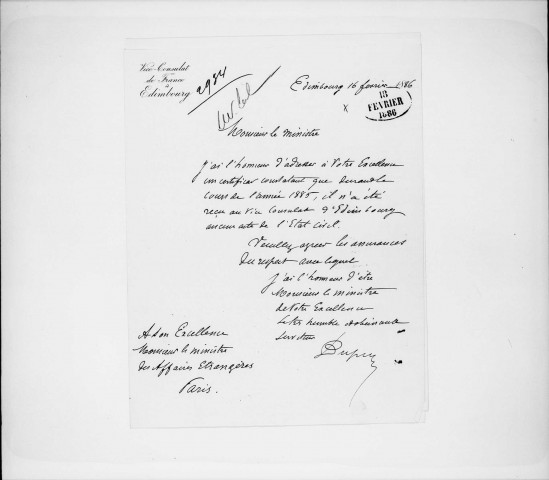 Vice-Consulat
de France
à
Edimbourg
2984
Edimbourg 16 février 1886
18
FEVRIER
1886
Monsieur le Ministre
J'ai l'honneur d'adresser à Votre Excellence
un certificat constatant que durant le
cours de l'année 1885, il n'a été
reçu au Vice Consulat d'Edimbourg
aucun acte de l'Etat Civil.
Veuillez agréer les assurances
du respect avec lequel
J'ai l'honneur d'être
Monsieur le ministre
de Votre Excellence
le très humble & obéissant
serviteur
A Son Excellence
Monsieur le ministre
des Affaires Etrangères
Paris.